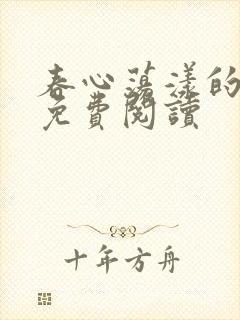 春心蕩漾的
免費閱讀
十年方舟